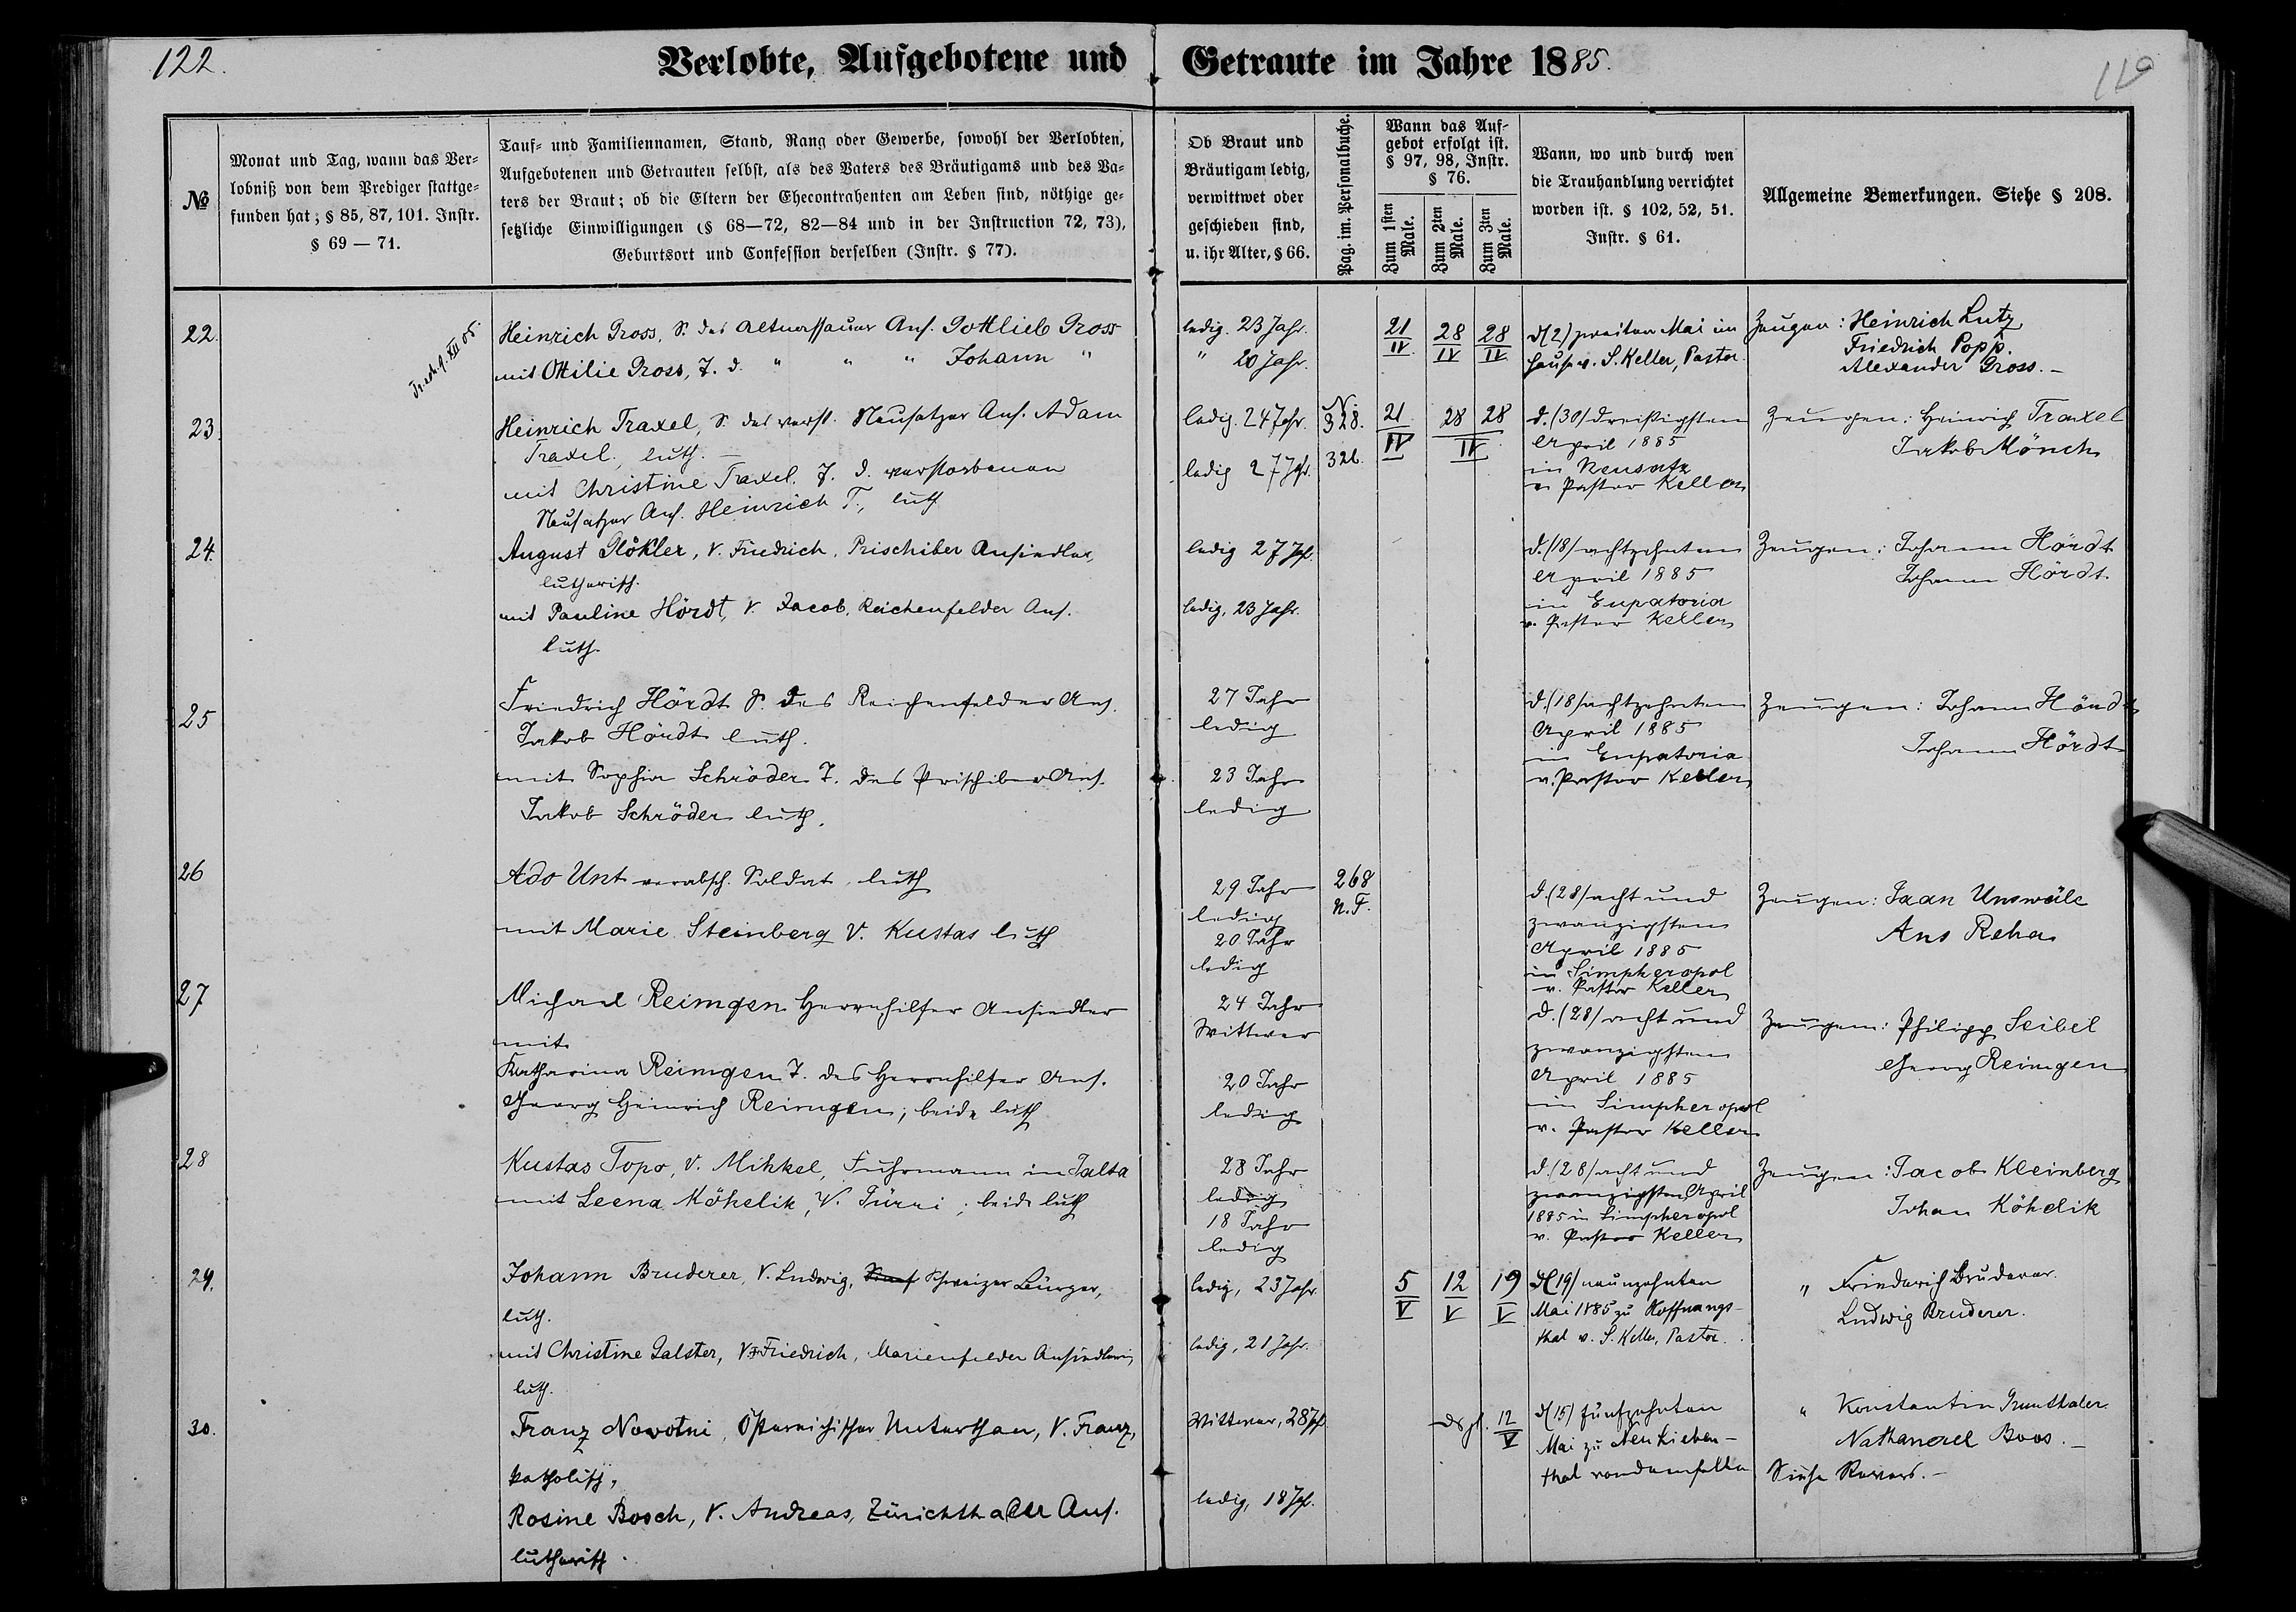 122.
Verlobte, Aufgebotene und Getraute im Jahre 1885.
№
Monat und Tag, wann das Ver-
lobniß von dem Prediger stattge-
funden hat; § 85, 87, 101. Instr.
§ 69 — 71.
Tauf- und Familiennamen, Stand, Rang oder Gewerbe, sowohl der Verlobten,
Aufgebotenen und Getrauten selbst, als des Vaters des Bräutigams und des Va-
ters der Braut; ob die Eltern der Ehecontrahenten am Leben sind, nöthige ge-
setzliche Einwilligungen (§ 68—72, 82—84 und in der Instruction 72, 73),
Geburtsort und Confession derselben (Instr. § 77).
Ob Braut und
Bräutigam ledig,
verwittwet oder
geschieden sind,
u. ihr Alter, § 66.
Pag. im. Personalbuche.
Wann das Auf-
gebot erfolgt ist.
§ 97, 98, Instr.
§ 76.
Zum 1sten Male.
Zum 2ten Male.
Zum 3ten Male.
Wann, wo und durch wen
die Trauhandlung verrichtet
worden ist. § 102, 52, 51.
Instr. § 61.
Allgemeine Bemerkungen. Siehe § 208.
22.
Heinrich Gross, S. des Altnassauer Ans. Gottlieb Gross
mit Ottilie Gross, T. d. " " " Johann "
ledig. 23 Jahr.
" 20 Jahr.
21/IV 28/IV 28/IV
d (2) zweiten Mai im
Hause v. S. Keller, Pastor.
Zeugen: Heinrich Lutz
Friedrich Popp.
Alexander Gross. —
23.
Heinrich Traxel, S. des verst. Neusatzer Ans. Adam
Traxel, luth. —
mit Christine Traxel. T. d. verstorbenen
Neusatzer Ans. Heinrich T., luth
ledig. 24 Jahr.
ledig 27 Jahr.
N.
328.
326.
21/IV 28 28/IV
d. (30) dreißigsten
April 1885
in Neusatz
v. Pastor Keller
Zeugen: Heinrich Traxel
Jakob Mönch
24.
August Glökler, V. Friedrich, Prischiber Ansiedler,
lutherisch.
mit Pauline Hördt, V. Jacob, Reichenfelder Ans.
luth.
ledig 27 Jahr.
ledig, 23 Jahr.
d. (18) achtzehnten
April 1885
in Eupatoria
v. Pastor Keller
Zeugen: Johann Hördt
Johann Hördt.
25
Friedrich Hördt S. des Reichenfelder Ans.
Jakob Hördt luth.
mit Sophia Schröder T. des Prischiber Ans.
Jakob Schröder luth.
27 Jahr
ledig
23 Jahr
ledig
d. (18) achtzehnten
April 1885
in Eupatoria
v. Pastor Keller
Zeugen: Johann Hördt
Johann Hördt
26
Ado Unt verabsch. Soldat, luth
mit Marie Steinberg V. Kustas luth
29 Jahr
ledig
20 Jahr
ledig
268
N. F.
d. (28) acht und
zwanzigsten
April 1885
in Simpheropol
v. Pastor Keller
Zeugen: Jaan Unswäle
Ans Reha
27
Michael Reimgen Herrnhilfer Ansiedler
mit
Katharina Reimgen T. des Herrnhilfer Ans.
Georg Heinrich Reimgen; beide luth
24 Jahr
Wittwer
20 Jahr
ledig
d. (28) acht und
zwanzigsten
April 1885
in Simpheropol
v. Pastor Keller
Zeugen: Philipp Seibel
Georg Reimgen
28
Kustas Topo, V. Mihkel, Fuhrmann in Jalta
mit Leena Köhelik, V. Jürri; beide luth
28 Jahr
ledig
18 Jahr
ledig
d. (28) acht und
zwanzigsten April
1885 in Simpheropol
v. Pastor Keller
Zeugen: Jacob Kleinberg
Johan Köhelik
29.
Johann Bruderer, V. Ludwig, Schweizer Bürger,
luth.
mit Christine Galster, V. Friedrich, Marienfelder Ansiedlerin,
luth.
ledig, 23 Jahr.
ledig, 21 Jahr.
5/V 12/V 19/V
d (19) neunzehnten
Mai 1885 zu Hoffnungs-
thal v. S. Keller, Pastor.
" Friedrich Bruderer.
Ludwig Bruderer.
30.
Franz Novotni, Östereichischer Unterthan, V. Franz,
katholisch,
Rosine Bosch, V. Andreas, Zürichthaler Ans.
lutherisch.
Wittwer, 28 Jahr
ledig, 18 Jahr.
dsgl. 12/V
d (15) fünfzehnten
Mai zu Neu Lieben-
thal von demselben
" Konstantin Grunthaler
Nathanael Boos. —
Siehe Revers. —